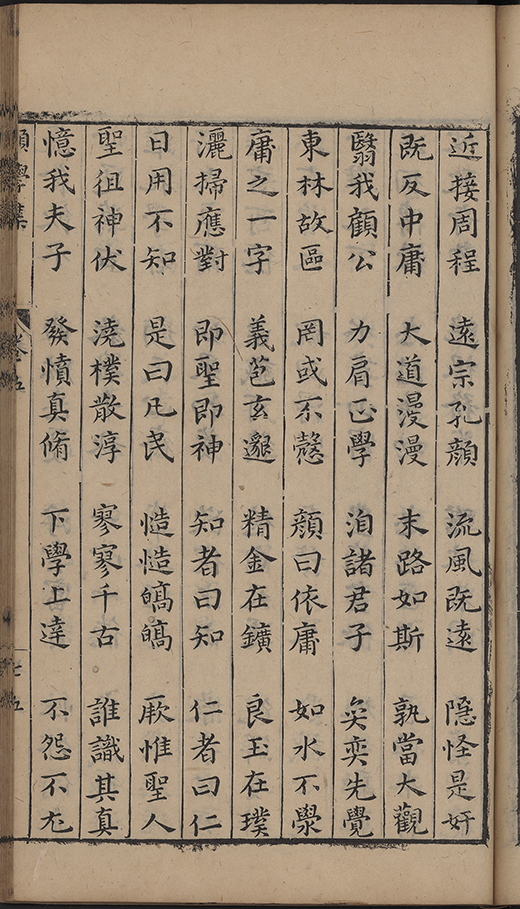 近接周程 遠宗孔顏 流風既遠 隱怪是奸
既反中庸 大道漫漫 末路如斯 孰當大觀
翳我顧公 力肩正學 洎諸君子 奕奕先覺
東林故區 罔或不愨 顏曰依庸 如水不澩
庸之一字 義苞玄邈 精金在鑛 良玉在璞
灑掃應對 即聖即神 知者曰知 仁者曰仁
日用不知 是曰凡民 慥慥皜皜 厥惟聖人
聖徂神伏 澆樸散淳 寥寥千古 誰識其真
憶我夫子 發憤真脩 下學上達 不怨不尤
願學集 卷五 七五